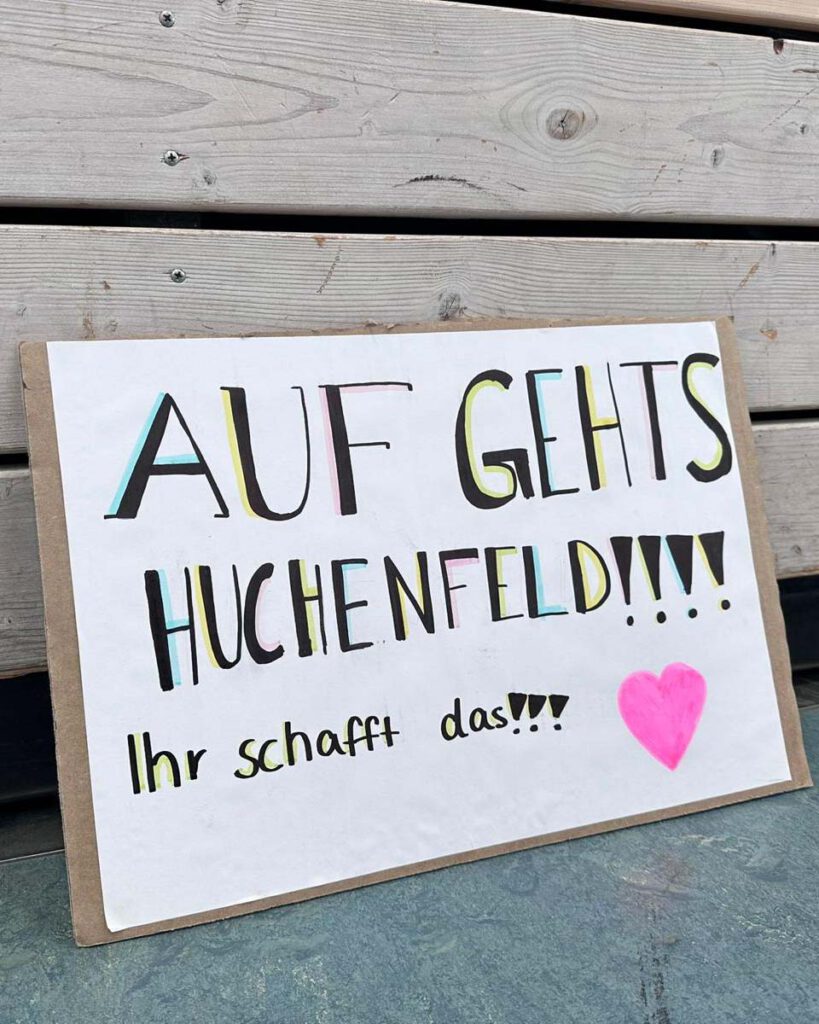 AUF GEHTS
HUCHENFELD!!!!
Ihr schafft das!!!